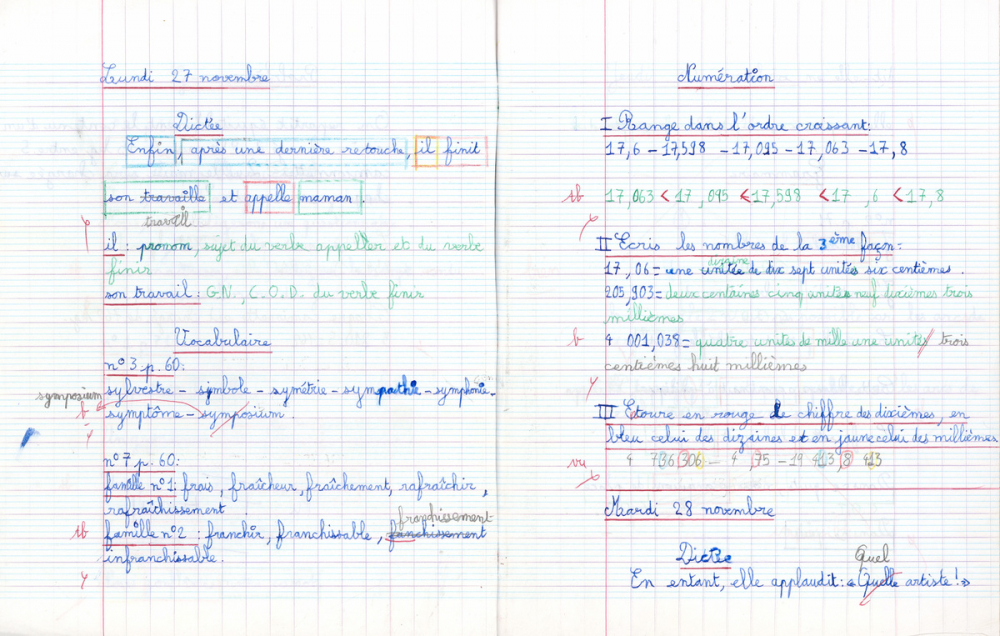 Lundi 27 novembre
Dictée
Enfin, après une dernière retouche, il finit
son travaille et appelle maman.
travail
il : pronom, sujet du verbe appeller et du verbe
finir
son travail : G.N., C.O.D. du verbe finir
Vocabulaire
n°3 p. 60:
symposium
sylvestre - simbole - symétrie - sympathie - symphonie -
b
symptôme - symposium.
n°7 p. 60:
famille n°1: frais, fraîcheur, fraîchement, rafraîchir,
rafraîchissement
franchissement
tb
famille n°2 : franchir, franchissable, franchissement
infranchissable.
Numération
I Range dans l'ordre croissant:
17,6 - 17,598 - 17,095 - 17,063 - 17,8
tb
17,063 < 17,095 < 17,598 < 17,6 < 17,8
II Ecris les nombres de la 3ème façon:
dizaine
17,06 = une unitée de dix sept unités six centièmes.
205,903 = deux centaines cinq unités neuf dixièmes trois
millièmes
b
4 001,038 = quatre unites de mille une unités trois
centièmes huit millièmes
III Etoure en rouge le chiffre des dixièmes, en
bleu celui des dizaines et en jaune celui des millièmes
vu
4 736,306 - 4,75 - 19 413,8 413
Mardi 28 novembre
Dictée
Quel
En entant, elle applaudit: « Quelle artiste! »